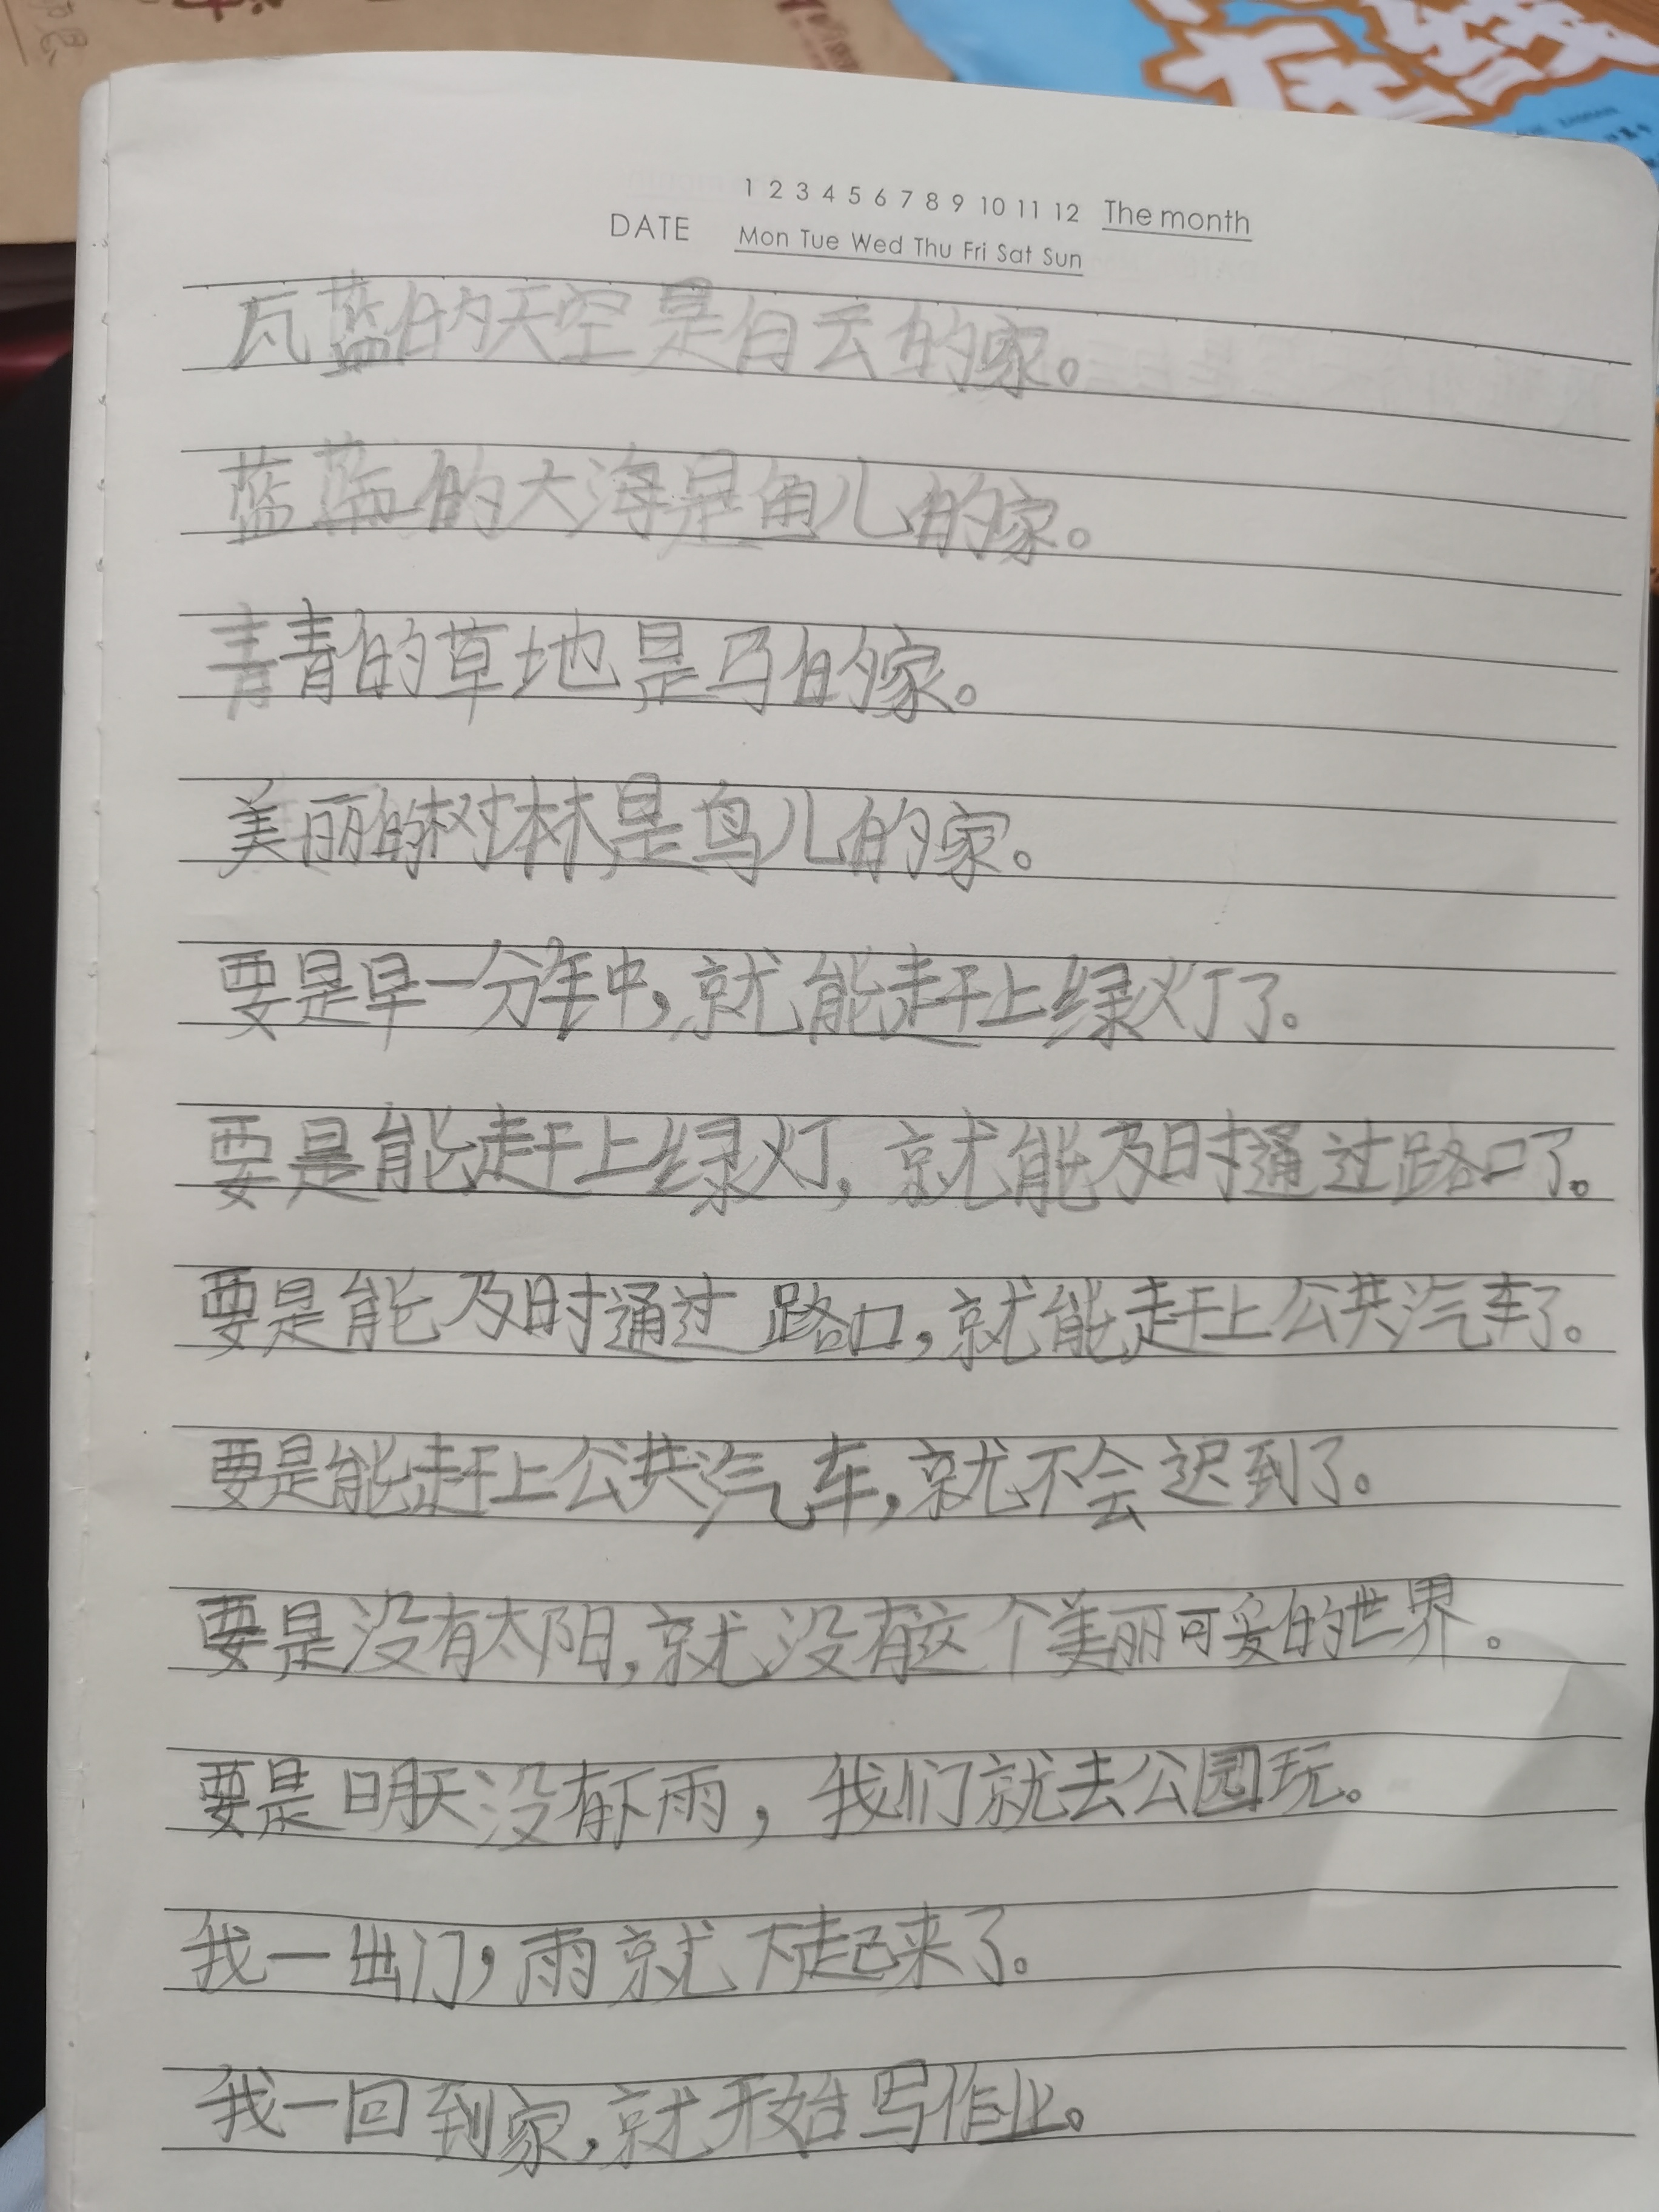 1 2 3 4 5 6 7 8 9 10 11 12 The month
DATE Mon Tue Wed Thu Fri Sat Sun
瓦蓝的天空是白云的家。
蓝蓝的大海是鱼儿的家。
青青的草地是马的家。
美丽的树林是鸟儿的家。
要是早一分钟,就能赶上绿灯了。
要是能赶上绿灯,就能及时通过路口了。
要是能及时通过路口,就能赶上公共汽车了。
要是能赶上公共汽车,就不会迟到了。
要是没有太阳,就没有这个美丽可爱的世界。
要是明天没有下雨,我们就去公园玩。
我一出门,雨就下起来了。
我一回到家,就开始写作业。